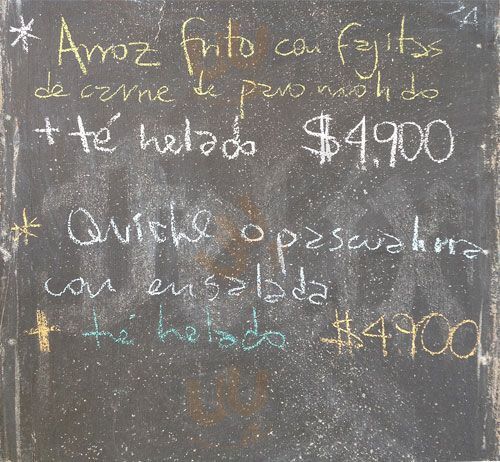 * Arroz frito con fajitas
de carne de pavo molido
+ té helado $4.900
* Quiche o pascualina
con ensalada
+ té helado $4.900